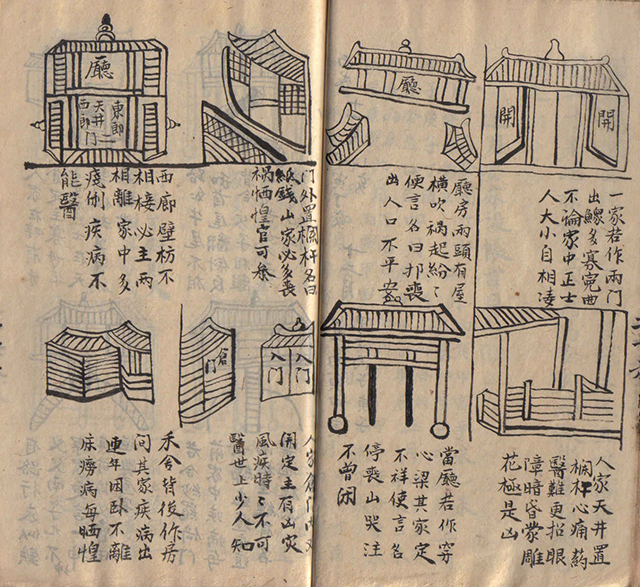 開
開
一家若作兩門
出鰥多寡寃曲
不論家中正士
人大小自相凌
廳
廳房兩頭有屋
橫吹祸起紛〻
便言名曰扛喪
出入口不平安
人家天井置
欄杆心痛葯
醫難更招眼
障暗昏蒙雕
花極是山
當廳若作穿
心梁其家定
不祥使言名
停喪山哭注
不曾闲
门外置欄杆名曰
紙錢山家必多喪
祸恓惶官可祭
廳
東郎
天井
西郎
门
西廊壁枋不
相接必主兩
相離家中多
倒疾病不
能醫
入门
入门
倉门
人家
開定主有凶灾
風疾時〻不可
醫世上少人知
禾舍皆後作房
问其家疾病出
連年困卧不離
床癆病每恓惶